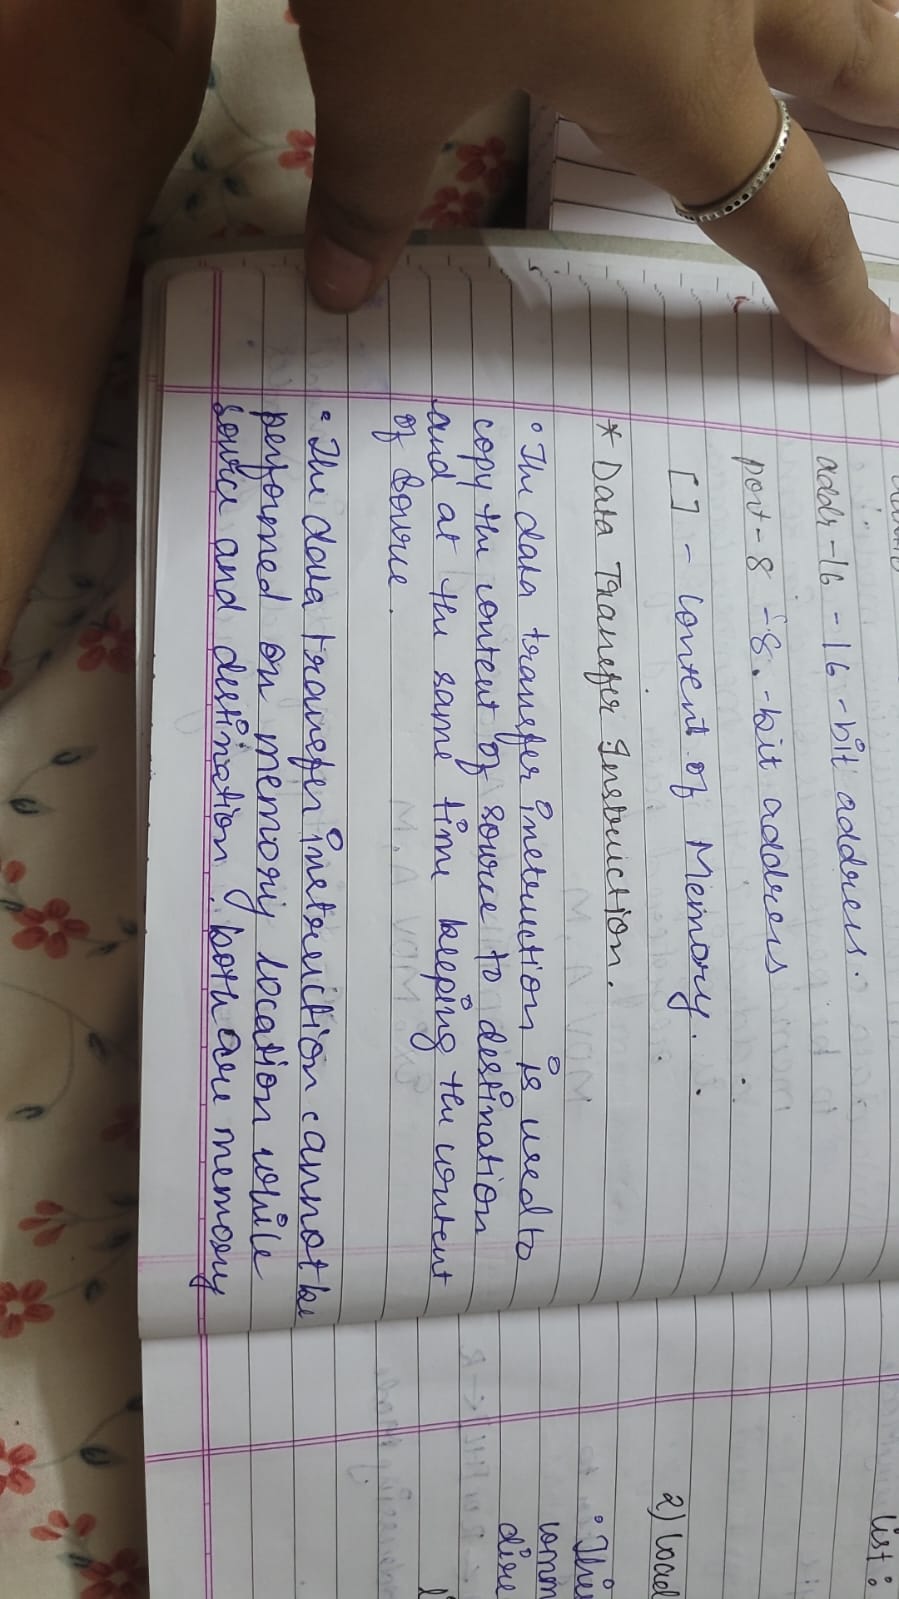 addr-16 - 16-bit address.
port-8 - 8.-bit address
[ ] - Content of Memory.
* Data Transfer Instruction.
• The data transfer instruction is used to
copy the content of source to destination
and at the same time keeping the content
of source.
• The data transfer instruction cannot be
performed on memory location while
source and destination. both are memory
list:
2) Load
• This
comm
dire